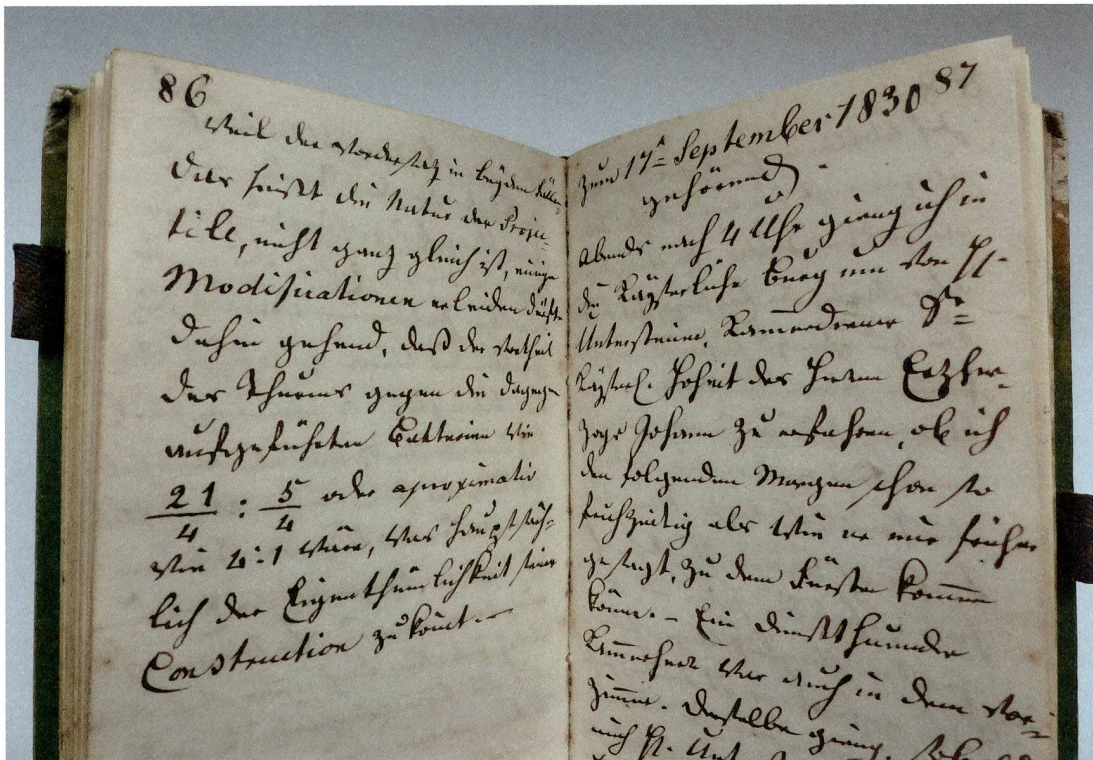 86
Weil der Vordersatz in beyden Fällen
das heißt die Natur der Projec-
tile, nicht ganz gleich ist, einige
Modificationen erleiden dürfte
dahin gehend, daß der Vortheil
des Thurms gegen die dagegen
aufgeführten Batterien wie
21/4 : 5/4 oder aproximativ
wie 4:1 wäre, was hauptsäch-
lich der Eigenthümlichkeit seiner
Construction zukömt.–
87
Zum 17t September 1830
gehörend
Abends nach 4 Uhr gieng ich in
die Kayserliche Burg um von H.
Untersteiner, Kammerdiener Sr
Kayserl. Hoheit des Herrn Erzher-
zogs Johann zu erfahren, ob ich
den folgenden Morgen schon so
fruhzeitig als wie er mir früher
gesagt, zu dem Fürsten kommen
könne.– Ein dienstthuender
war auch in dem Vor-
zimmer. Derselbe gieng